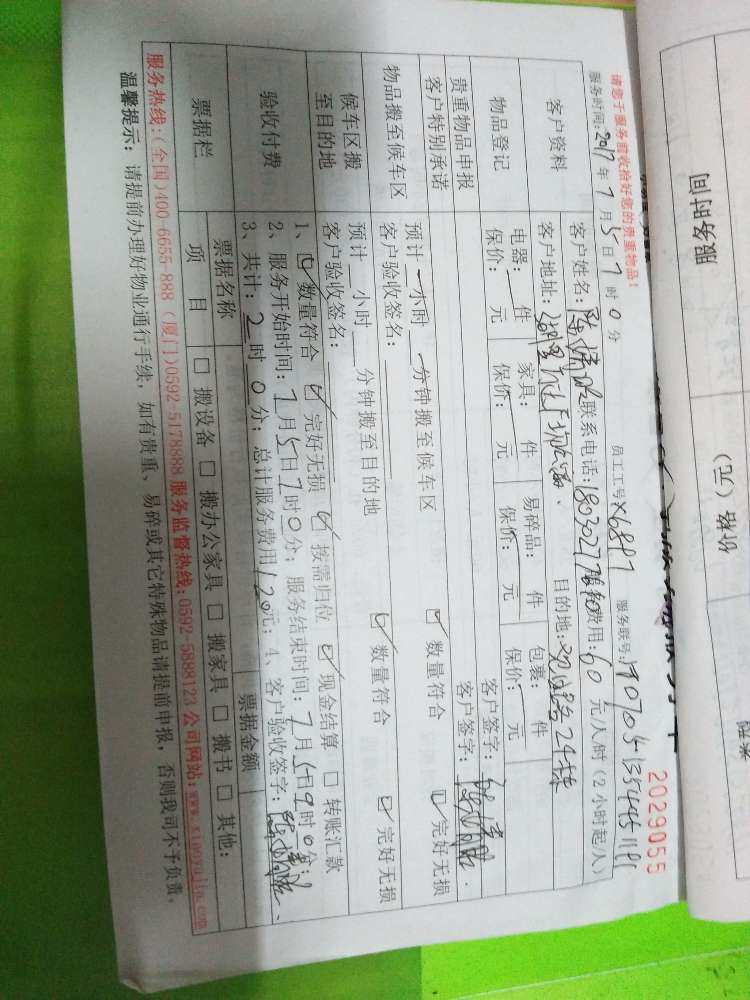 服务时间
价格（元）
2029055
请您于服务前收拾好您的贵重物品！
服务时间：2017年7月5日7时0分 员工工号X6897 服务联号：
客户资料
客户姓名： 联系电话： 服务费用：60元/人/时（2小时起/人）
客户地址： 目的地：
物品登记
电器： 件 家具： 件 易碎品： 件 包裹： 件
保价： 元 保价： 元 保价： 元 保价： 元
贵重物品申报 客户签字：
客户特别承诺 客户签字：
物品搬至候车区
预计 小时 分钟搬至候车区 数量符合 完好无损
客户验收签名：
候车区搬至目的地
预计 小时 分钟搬至目的地 数量符合 完好无损
客户验收签名：
验收付费
1、数量符合 完好无损 按需归位 现金结算 转账汇款
2、服务开始时间：7月5日7时0分；服务结束时间：7月5日9时0分
3、共计：2时0分；总计服务费用120元；4、客户验收签字：
票据栏
票据名称 票据金额
项目 搬设备 搬办公家具 搬家具 搬书 其他：
服务热线：（全国）400-6655-888（厦门）0592-5178888 服务监督热线：0592-5888123 公司网站：
温馨提示：请提前办理好物业通行手续，如有贵重、易碎或其它特殊物品请提前申报，否则我司不予负责。